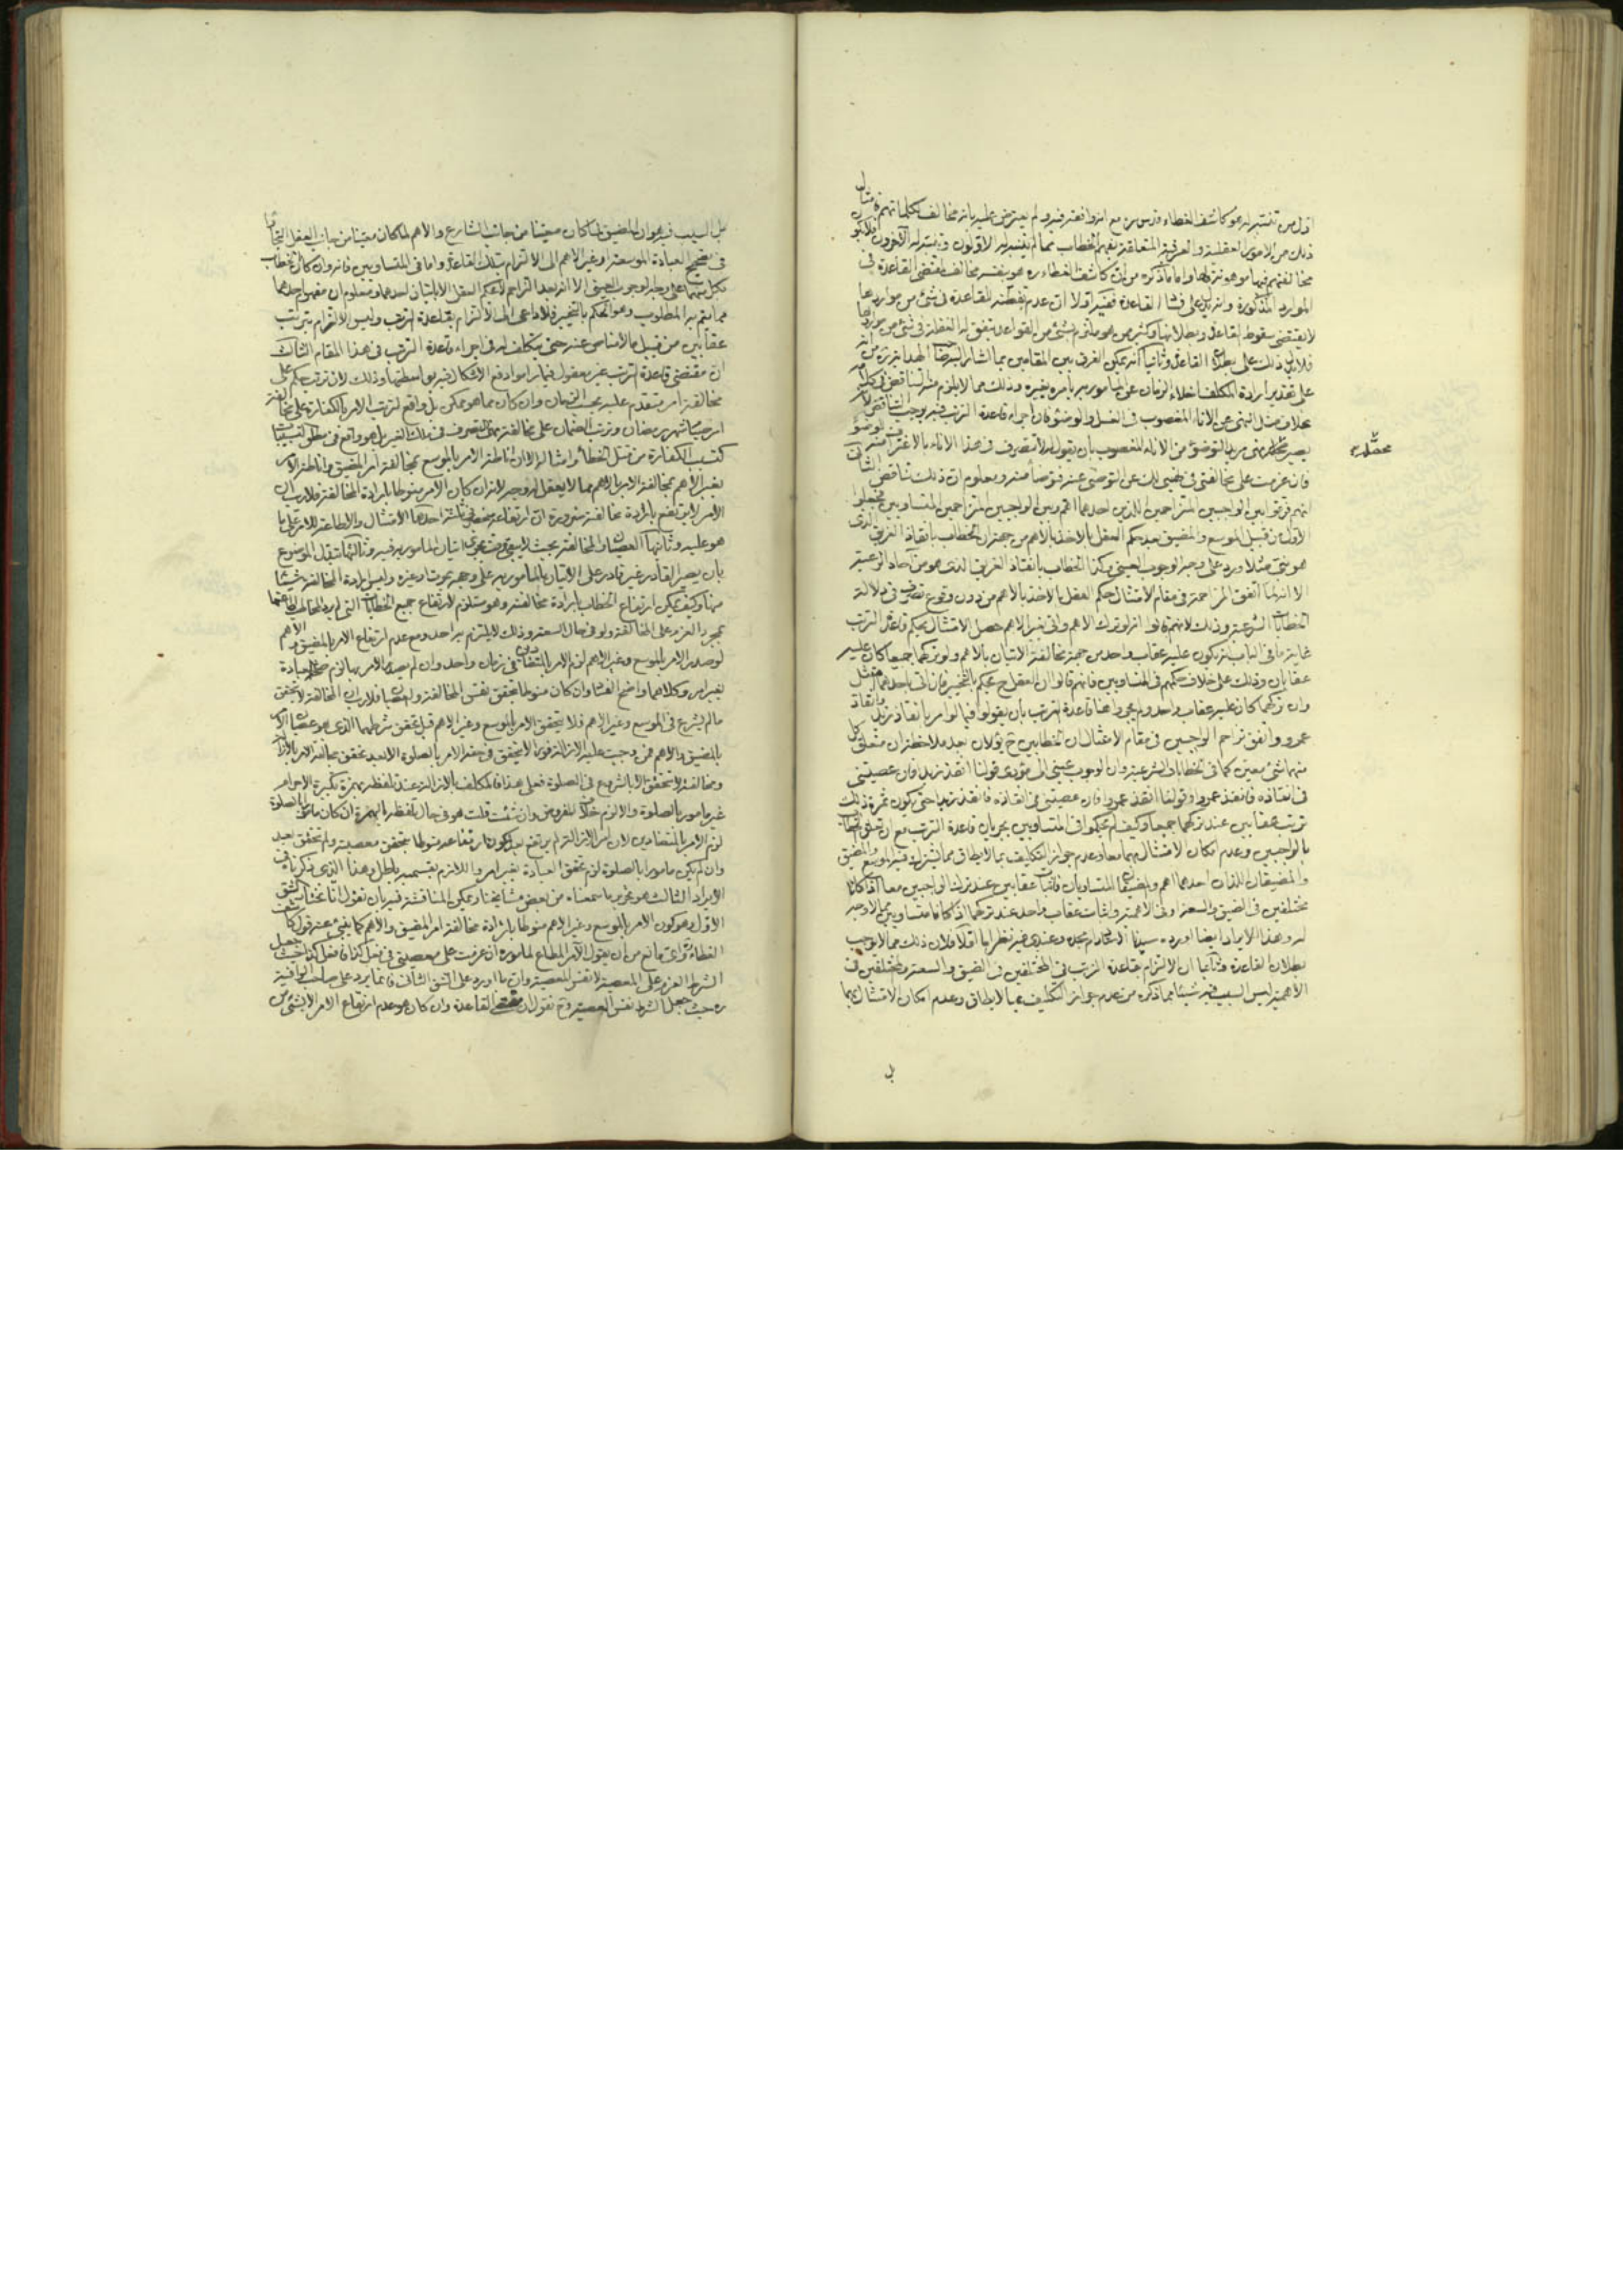 اول من تنبه له هو كاشف الغطاء قدس سره مع انه وافقه فيه ولم يعترض عليه بانه مخالف لكلماتهم فامثال
ذلك من الامور العقلية والعرفية المتعلقة بفهم الخطاب مما لم يتنبه له الاولون وتنبه له الآخرون
مخالفتهم فيها موهونة لها واما ما ذكره من ان كاشف الغطاء ره هو بنفسه مخالف لمقتضى القاعدة في
الموارد المذكورة وانه يدل على فساد القاعدة ففيه اولا ان عدم تفطنه للقاعدة في شئ من مواردها
لا يقتضى سقوط القاعدة وبطلانها وكثير ممن هو ملتزم بشئ من القواعد يتفق له الغفلة في شئ من مواردها
فلا يدل ذلك على بطلان القاعدة وثانيا انه يمكن الفرق بين المقامين بما اشار اليه
على تقدير ارادة المكلف اخلاء الزمان عن المأمور به يأمره بغيره وذلك مما لا يلزم منه تناقض في كلامه
بخلاف مثل النهى عن الاناء المغصوب في الغسل والوضوء فان اجراء قاعدة الترتب فيه يوجب التناقض
محصله
من الاناء المغصوب بأن يقول له لا تتصرف في هذا الاناء بالاغتراف منه
فان عزمت على مخالفتى في نهيى لك عن التوضى عنه فتوضأ منه ومعلوم ان ذلك تناقض الثالث
انهم فرقوا بين الواجبين المتزاحمين اللذين احدهما اهم وبين الواجبين المتزاحمين المتساويين فجعلوا
الاول من قبيل الموسع والمضيق بعد حكم العقل بالاخذ بالاهم من جهة ان الخطاب بانقاذ الغريق الذى
هو نبى مثلا ورد على وجه الوجوب العينى وكذا الخطاب بانقاذ الغريق الذى هو من آحاد الرعية
الا انه لما اتفق المزاحمة في مقام الامتثال حكم العقل بالاخذ بالاهم من دون وقوع تصرف في دلالة
الخطابات الشرعية وذلك لانهم قالوا انه لو ترك الاهم واتى بغير الاهم حصل الامتثال بحكم قاعدة الترتب
غاية ما في الباب انه يكون عليه عقاب واحد من جهة مخالفة الاتيان بالاهم ولو تركهما جميعا كان عليه
عقابان وذلك على خلاف حكمهم في المتساويين فانهم قالوا ان العقل ح يحكم بالتخيير فان اتى باحدهما امتثل
وان تركهما كان عليه عقاب واحد ولم يجروا هنا قاعدة الترتب بأن يقولوا فيما لو امر بانقاذ زيد وانقاذ
عمرو واتفق تزاحم الواجبين في مقام الامتثال ان الخطابين ح يؤلان بعد ملاحظة ان متعلق كل
منهما شئ معين كما في الخطابات الشرعية وان الوجوب عينى الى مؤدى قولنا انقذ زيدا فان عصيتنى
في انقاذه فانقذ عمروا وقولنا انقذ عمروا فان عصيتنى في انقاذه فانقذ زيدا حتى يكون ثمرة ذلك
ترتب عقابين عند تركهما جميعا وكيف لم يحكموا في المتساويين بجريان قاعدة الترتب مع ان تعلق الخطاب
بالواجبين وعدم امكان الامتثال بهما معا وعدم جواز التكليف بما لا يطاق مما يشترك فيه الموسع والمضيق
والمضيقان اللذان احدهما اهم والمضيقان المتساويان فاثبات عقابين عند ترك الواجبين معا اذا كانا
مختلفين في الضيق والسعة او في الاهمية واثبات عقاب واحد عند تركهما اذا كانا متساويين مما لا وجه
له وهذا الايراد ايضا اورده سيدنا الاستاد دام مجده وعندى فيه نظر اما اولا فلان ذلك مما لا يوجب
بطلان القاعدة وثانيا ان الالتزام بقاعدة الترتب في المختلفين في الضيق والسعة والمختلفين في
الاهمية ليس السبب فيه شيئا مما ذكره من عدم جواز التكليف بما لا يطاق وعدم امكان الامتثال بهما
بل
بل السبب فيه هو ان المضيق لما كان معينا من جانب الشارع والاهم لما كان معينا من جانب العقل
في تصحيح العبادة الموسعة او غير الاهم الى الالتزام بتلك القاعدة واما في المتساويين فانه وان كان الخطاب
بكل منهما على وجه الوجوب العينى الا انه بعد التزاحم لا يحكم العقل الا باتيان احدهما ومعلوم ان مفهوم احدهما
مما يتم به المطلوب وهو الحكم بالتخيير فلا داعى الى الالتزام بقاعدة الترتب وليس الالتزام بترتب
عقابين من قبيل ما لا مناص عنه حتى يتكلف له في اجراء قاعدة الترتب في هذا المقام الثالث
ان مقتضى قاعدة الترتب غير معقول فيما راموا دفع الاشكال فيه بواسطتها وذلك لان ترتب حكم على
مخالفة امر متقدم عليه بحسب الزمان وان كان مما هو ممكن بل واقع لترتب الامر بالكفارة على مخالفة
امر صيام شهر رمضان وترتب الضمان على مخالفة نهى التصرف في ملك الغير بل هو واقع في مطلق
كتسبب الكفارة من قتل الخطأ وامثاله الا ان اناطة الامر بالموسع بمخالفة امر المضيق واناطة الامر
بغير الاهم بمخالفة الامر بالاهم مما لا يعقل له وجه لانه ان كان الامر منوطا بارادة المخالفة فلا ريب ان
الامر لا يرتفع بارادة مخالفته ضرورة ان ارتفاعه منحصر في ثلثة احدها الامتثال والاطاعة للامر على ما
هو عليه وثانيها العصيان والمخالفة بحيث لا يبقى وقت يجوز اتيان المأمور به فيه وثالثها تبدل الموضوع
بان يصير القادر غير قادر على الاتيان بالمأمور به على وجه بموت او غيره وليس ارادة المخالفة شيئا
منها وكيف يمكن ارتفاع الخطاب بارادة مخالفته وهو مستلزم لارتفاع جميع الخطابات التى لم يرد المخاطب
بمجرد العزم على المخالفة ولو في حال السعة وذلك لا يلتزم به احد ومع عدم ارتفاع الامر بالمضيق والاهم
لو صدر الامر بالموسع وغير الاهم لزم الامر بالمتضادين في زمان واحد وان لم يصدر الامر بهما لزم صحة العبادة
بغير امر وكلاهما واضح الفساد وان كان منوطا بتحقق نفس المخالفة والعصيان فلا ريب ان المخالفة لا تتحقق
ما لم يشرع في الموسع وغير الاهم فلا يتحقق الامر بالموسع وغير الاهم قبل تحقق شرطهما الذى هو عصيان الامر
بالمضيق والاهم فمن وجبت عليه الازالة فورا لا يتحقق في حقه الامر بالصلوة الا بعد تحقق مخالفة الامر بالازالة
ومخالفته لا تتحقق الا بالشروع في الصلوة فعلى هذا فالمكلف بالازالة عند تلفظه بهمزة تكبيرة الاحرام
غير مامور بالصلوة والا لزم خلاف المفروض وان شئت قلت هو في حال تلفظه بالهمزة ان كان مامورا بالصلوة
لزم الامر بالمتضادين لان امر الازالة لم يرتفع بعد لكون ارتفاعه منوطا بتحقق معصيته ولم تتحقق بعد
وان لم يكن مامورا بالصلوة لزم تحقق العبادة بغير امر واللازم بقسميه باطل وهذا الذى ذكرناه في
الايراد الثالث هو تحرير ما سمعناه من بعض مشايخنا ويمكن المناقشة فيه بان نقول انا نختار الشق
الاول وهو كون الامر بالموسع وغير الاهم منوطا بارادة مخالفة امر المضيق والاهم كما ينبئ عنه قول كاشف
الغطاء ره واى مانع من ان يقول الآمر المطاع لمأموره ان عزمت على معصيتى في فعل كذا فافعل كذا حيث جعل
الشرط العزم على المعصية لا نفس المعصية وان ما اورد على الشق الثانى فانما يرد على صاحب الوافية
ره حيث جعل الشرط نفس المعصية وح نقول ان مقتضى القاعدة وان كان هو عدم ارتفاع الامر الا بشئ من